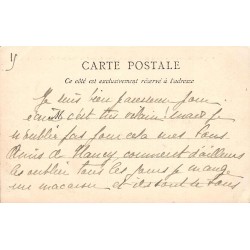 y
CARTE POSTALE
Ce côté est exclusivement réservé à l'adresse
Je suis bien paresseuse pour
écrire c'est très vilain! mais je
n'oublie pas pour cela mes bons
Amis de Nancy comment d'ailleurs
les oublier tous les jours je mange
un macaron et ils sont si bons